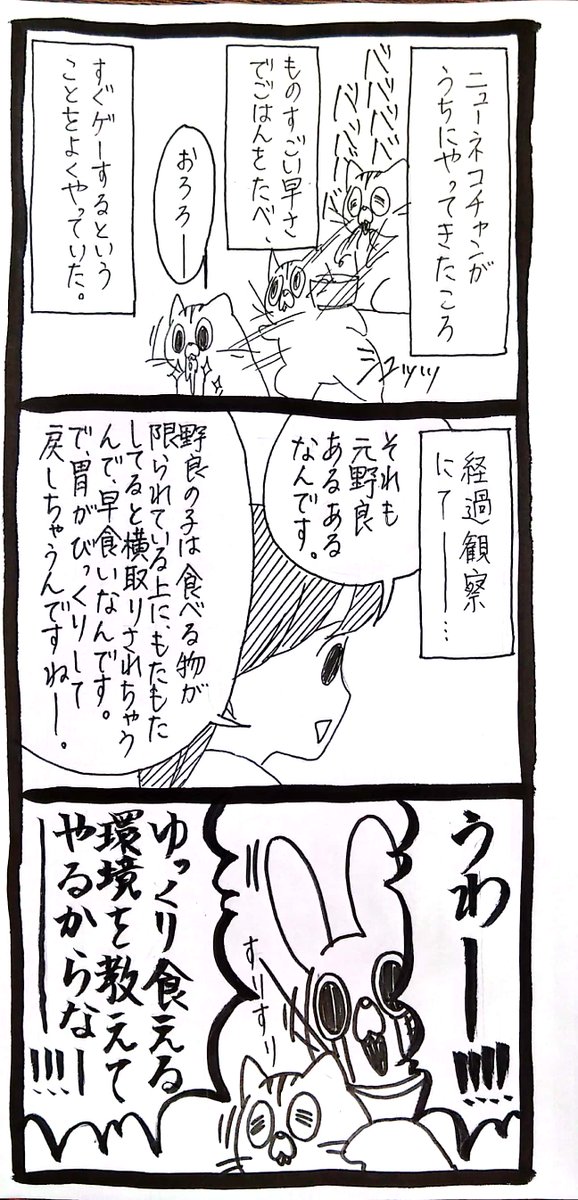 ニューネコチャンが
うちにやってきたころ
ベベベベベベベ
ものすごい早さ
でごはんをたべ、
おろろー
すぐゲーするという
ことをよくやっていた。
経過観察
にて――…
それも
元野良
あるある
なんです。
野良の子は食べる物が
限られている上に、もたもた
してると横取りされちゃう
んで、早食いなんです。
で、胃がびっくりして
戻しちゃうんですねー。
うわー!!!!
すりすり
ゆっくり食える
環境を教えて
やるからなー
ー!!!!